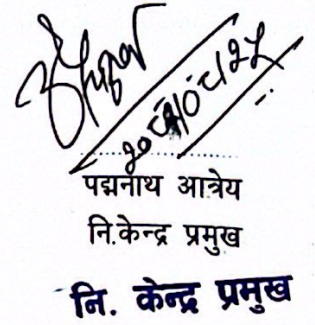 पद्मनाथ आत्रेय
नि.केन्द्र प्रमुख
नि. केन्द्र प्रमुख